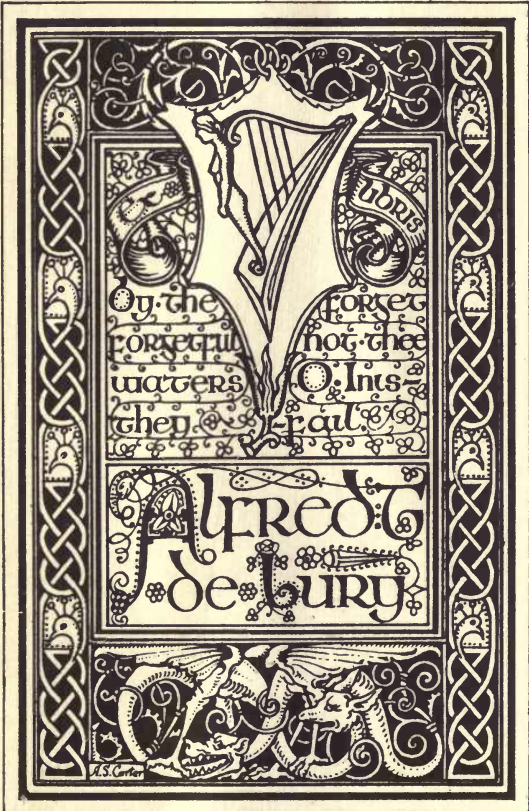 Ex
Libris
By·the
forgetful
waters
they
forget
not·thee
O·Inis-
-fail.
Alfred·T
de Lury
A.S. Carter